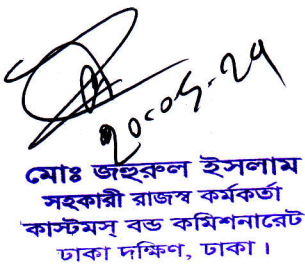 ২০-০৫-২১
মোঃ জহুরুল ইসলাম
সহকারী রাজস্ব কর্মকর্তা
কাস্টমস্ বন্ড কমিশনারেট
ঢাকা দক্ষিণ, ঢাকা।